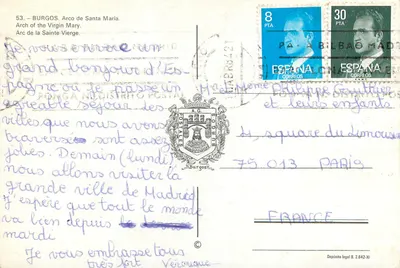 53. – BURGOS. Arco de Santa María.
Arch of the Virgin Mary.
Arc de la Sainte Vierge.
Je vous envoie un
grand bonjour d'Es-
pagne où je passe un
agréable séjour les
villes que nous avons
traversé sont assez
jolies. Demain (lundi)
nous allons visiter la
grande ville de Madrid
J'espère que tout le monde
va bien depuis
mardi
Je vous embrasse tous
très fort Véronique
8
PTA
ESPAÑA
CORREOS
30
PTA
ESPAÑA
CORREOS
BILBAO
Burgos
Mr et Mme Philippe
et leurs enfants
square du Limousin
75 013 PARIS
FRANCE
Depósito legal B.